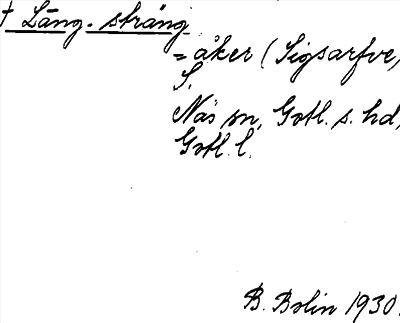 † Lång-sträng
= åker (Sigsarfve,
S.
Näs sn, Gotl. s. hd,
Gotl. l.
B. Bolin 1930.